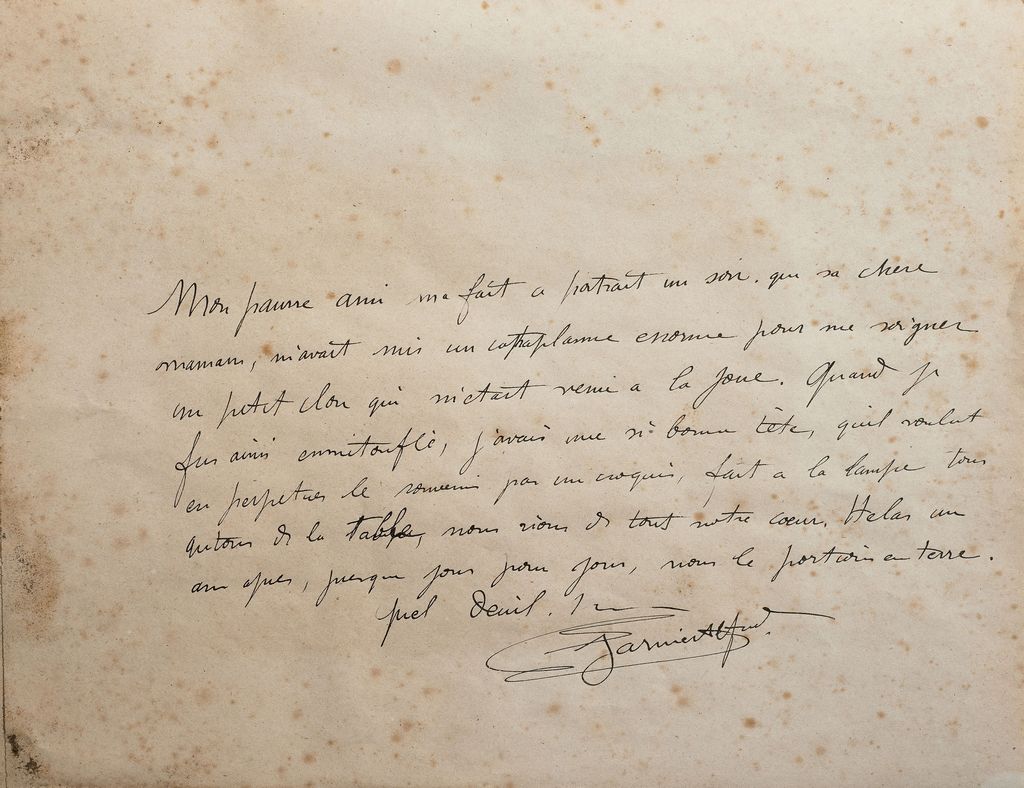 Mon pauvre ami m'a fait ce portrait un soir. que sa chere
maman, m'avait mis un cataplasme enorme pour me soigner
un petit clou qui m'etait venu a la joue. Quand je
fus ainsi emmitouflé, j'avais une si bonne tête, qu'il voulut
en perpetuer le souvenir par un croquis, fait a la lampe tous
autour de la table, nous rions de tout notre coeur. Helas un
an apres, presque jour pour jour, nous le portions en terre.
quel deuil.
Garnier